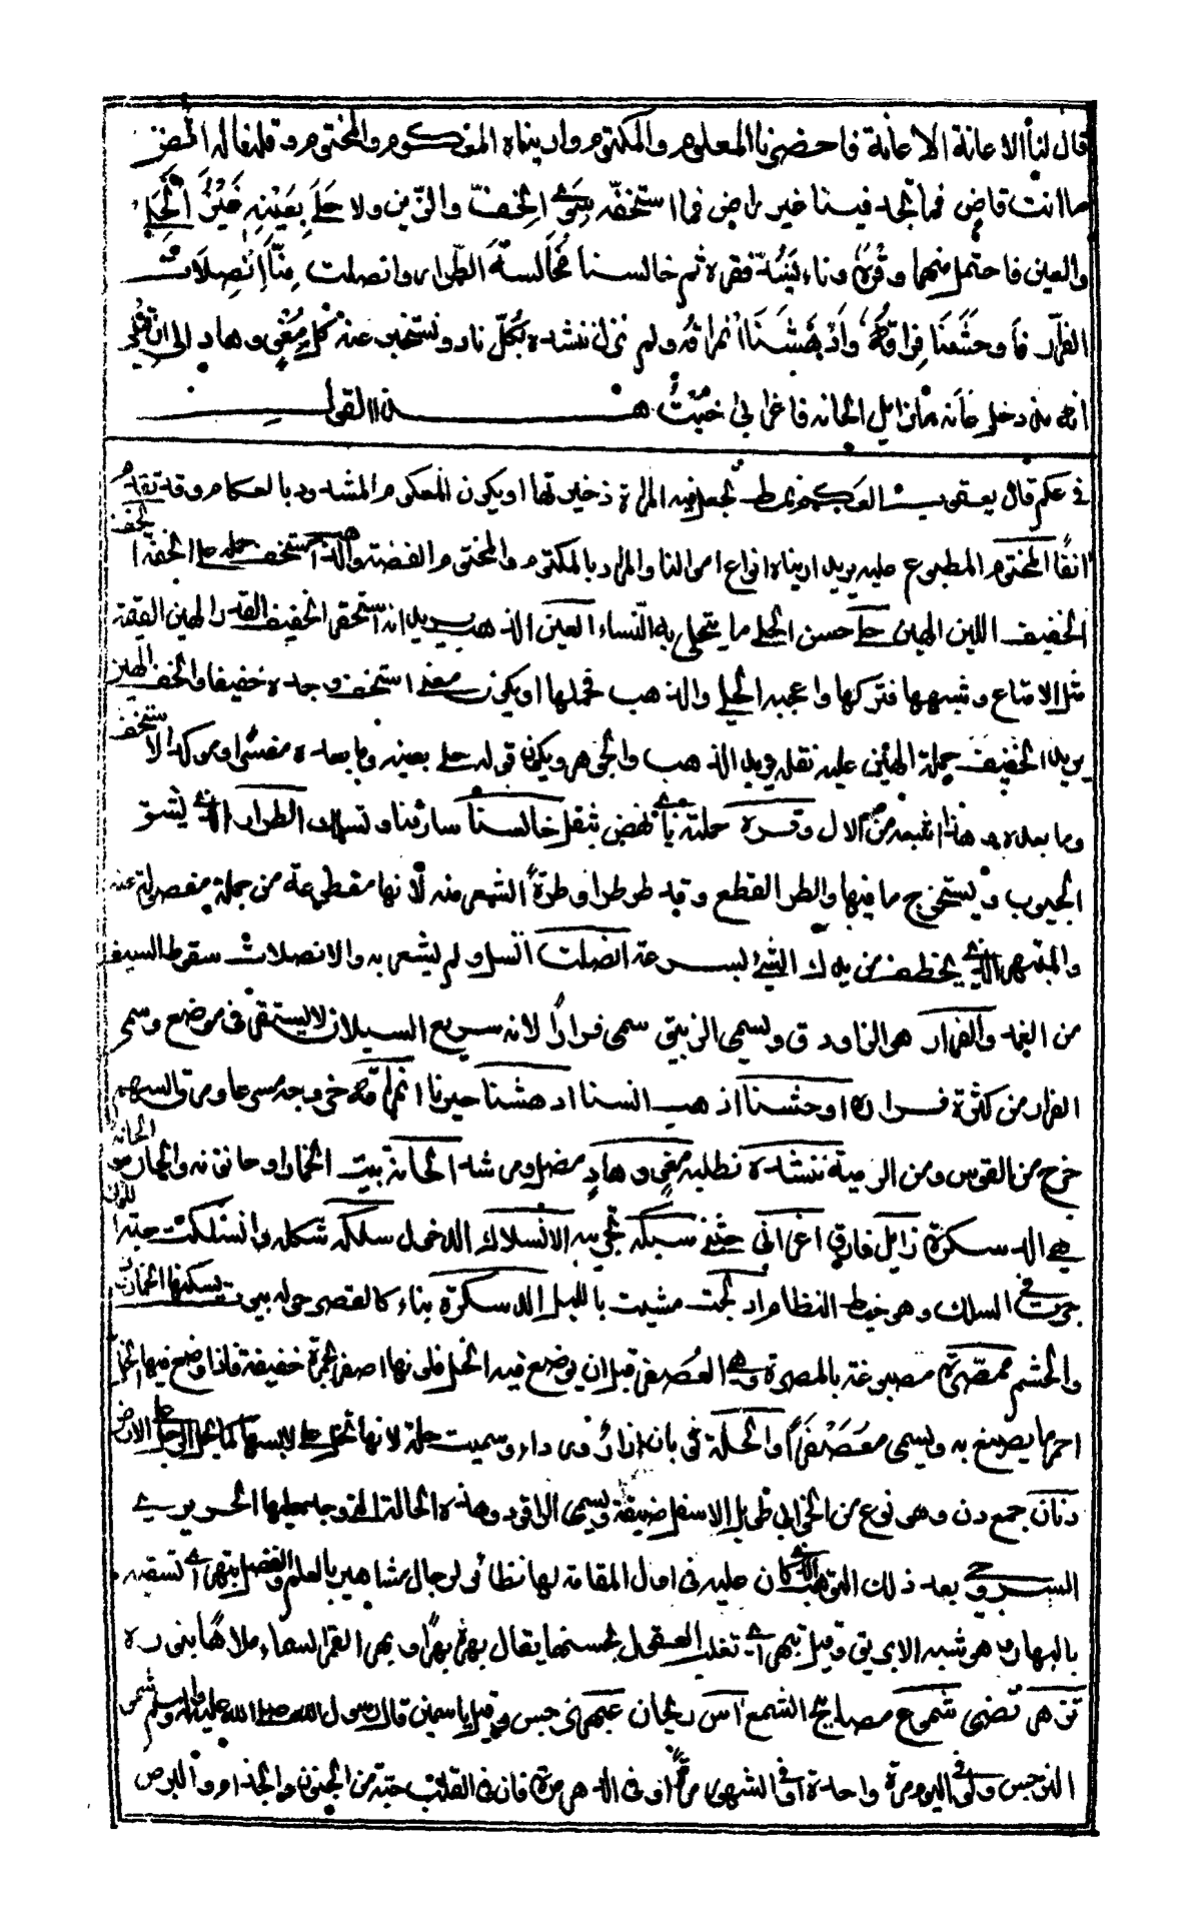 قال لنا الاعانة الاعانة فاحضرنا المعلوم والمكتوم واريناه المعكوم والمختوم وقلنا له اقض
ما انت قاض فما تجد فينا غير راض فما استخفه سوى الخف والزين ولا حلي بعينه غير الحلي
والعين فاحتمل منهما وقره وناء بنبه فقره ثم خالسنا مخالسة الطرار وانصلت منا انصلات
الفرار فاوحشنا فراقه وادهشنا امراقه ولم نزل ننشده بكل ناد ونستخبر عنه كل مغو وهاد الى ان قيل
انه مذ دخل عانة ما زايل الحانة فاغراني خبث هذا القول
في عكم قال يعقوب العكم نمط تجعل فيه المراة ذخيرتها او يكون المعكوم المشدود بالعكام وقد تقدم
انفا المختوم المطبوع عليه يريد اريناه انواع اموالنا والمراد بالمكتوم والمختوم الفضة والذهب استخف حمله على الخفة الخف
الخفيف اللين الهين حلي حسن الحلي ما يتحلى به النساء العين الذهب يريد انه استحقر الخفيف القدر الهين القيمة
مثل الامتاع وشبهها فتركها واعجبه الحلي والذهب فحملها او يكون معنى استخف وجده خفيفا والخف الهين
يريد الخفيف حمله الهين عليه نقله يريد الذهب والجوهر ويكون قوله حلي بعينه وما بعده مفسرا ومؤكدا لاستخف
وما بعده وهذا اشبه من الاول وقره حملته ناء نهض بثقل خالسنا سارقنا وتسلل الطرار الذي يشق
الجيوب ويستخرج ما فيها والطر القطع وقد طر طرا وطرة الشعر منه لانها مقطوعة من جملة مفصولة عنه
والمبتهر الذي يخطف من يدك الشيء بسرعة انصلت انسل ولم يشعر به والانصلات سقوط السيف
من الغمد والفرار هو الزاووق ويسمى الزيبق سمى فرارا لانه سريع السيلان لا يستقر في موضع وسمى
الفرار من كثرة فراره اوحشنا اذهب انسنا ادهشنا حيرنا امراقه خروجه مسرعا ومرق السهم
خرج من القوس ومن الرمية ننشده نطلبه مغو وهاد مضل ومرشد الحانة بيت الخمار او حانوته والخمار هو الحانة
هي الدسكرة زايل فارق اغراني حثني سبكه تجربيه الانسلاك الدخول سلكه شكله وانسلكت حبة اللؤلؤ
جرت في السلك وهو خيط النظام ادلجت مشيت بالليل الدسكرة بناء كالقصر حوله بيوت يسكنها الخمارون
والحشم ممصرة مصبوغة بالمصرة وهي العصفر قبل ان يوضع فيه الخل فلونها اصفر لحمرة خفيفة فاذا وضع فيها الخل
احمر ما يصبغ به ويسمى معصفرا والحلة ثوبان ازار ورداء وسميت حلة لانها تحل على لابسها كما يحل الرجل على الارض
دنان جمع دن وهو نوع من الخوابي طويل الاسفل ضيقه ويسمى الراقود وهذه الحالة التي وجد عليها الحريري
السروجي بعد ذلك الذي كان عليه في اول المقامة لها نظائر لرجال مشاهير بالعلم والفضل بتهر اي تسقى
بالبهار هو شبه الابريق وقيل تبهر اي تغلب العقول بحسنها يقال بهره بهرا وبهر القمر السماء ملاها بنوره
تزهر تضيء شموع مصابيح الشمع اس ريحان عبهر نرجس وقيل ياسمين قال رسول الله صلى الله عليه واله وسلم شموا
النرجس ولو في اليوم مرة واحدة او في الشهر مرة او في الدهر مرة فان في القلب حبة من الجنون والجذام والبرص